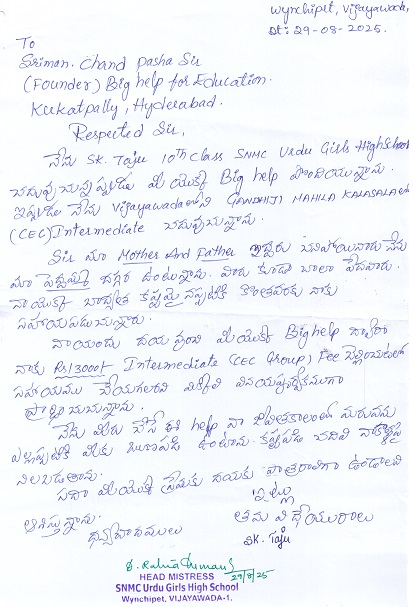 Wynchipet, Vijayawada,
Dt: 29-08-2025.
To
Sriman. Chand pasha Sir
(Founder) Big help for Education.
Kukatpally, Hyderabad.
Respected Sir,
నేను SK. Taju 10th Class SNMC Urdu Girls High School
చదువుచున్నప్పుడు మీ యొక్క Big help పొందియున్నాను.
ఇప్పుడు నేను Vijayawada లోని GANDHIJI MAHILA KALASALA లో
(CEC) Intermediate చదువుచున్నాను.
Sir మా Mother And Father ఇద్దరు చనిపోయినారు నేను
మా పెద్దమ్మ దగ్గర ఉంటున్నాను. వారు కూడా చాలా పేదవారు.
నా యొక్క బాధ్యత కష్టమైనప్పటికీ కొంతవరకు నాకు
సహాయపడుచున్నారు.
నాయందు దయ వుంచి మీ యొక్క Big help ద్వారా
నాకు Rs 13000/- Intermediate (CEC Group) Fee చెల్లించుటలో
సహాయము చేయగలరని మిమ్మల్ని వినయపూర్వకముగా
ప్రార్థించుచున్నాను.
నేను మీరు చేసే ఈ help నా జీవితకాలంలో మరువను
ఎల్లప్పుడికి మీకు ఋణపడి ఉంటాను. కష్టపడి చదివి నా కాళ్ళపై
నిలబడతాను.
సదా మీ యొక్క ప్రేమకు దయకు పాత్రురాలిగా ఉండాలని
ఆశిస్తున్నాను.
ఇట్లు
ధన్యవాదములు
తమ విధేయురాలు
SK. Taju
29/8/25
HEAD MISTRESS
SNMC Urdu Girls High School
Wynchipet, VIJAYAWADA-1.